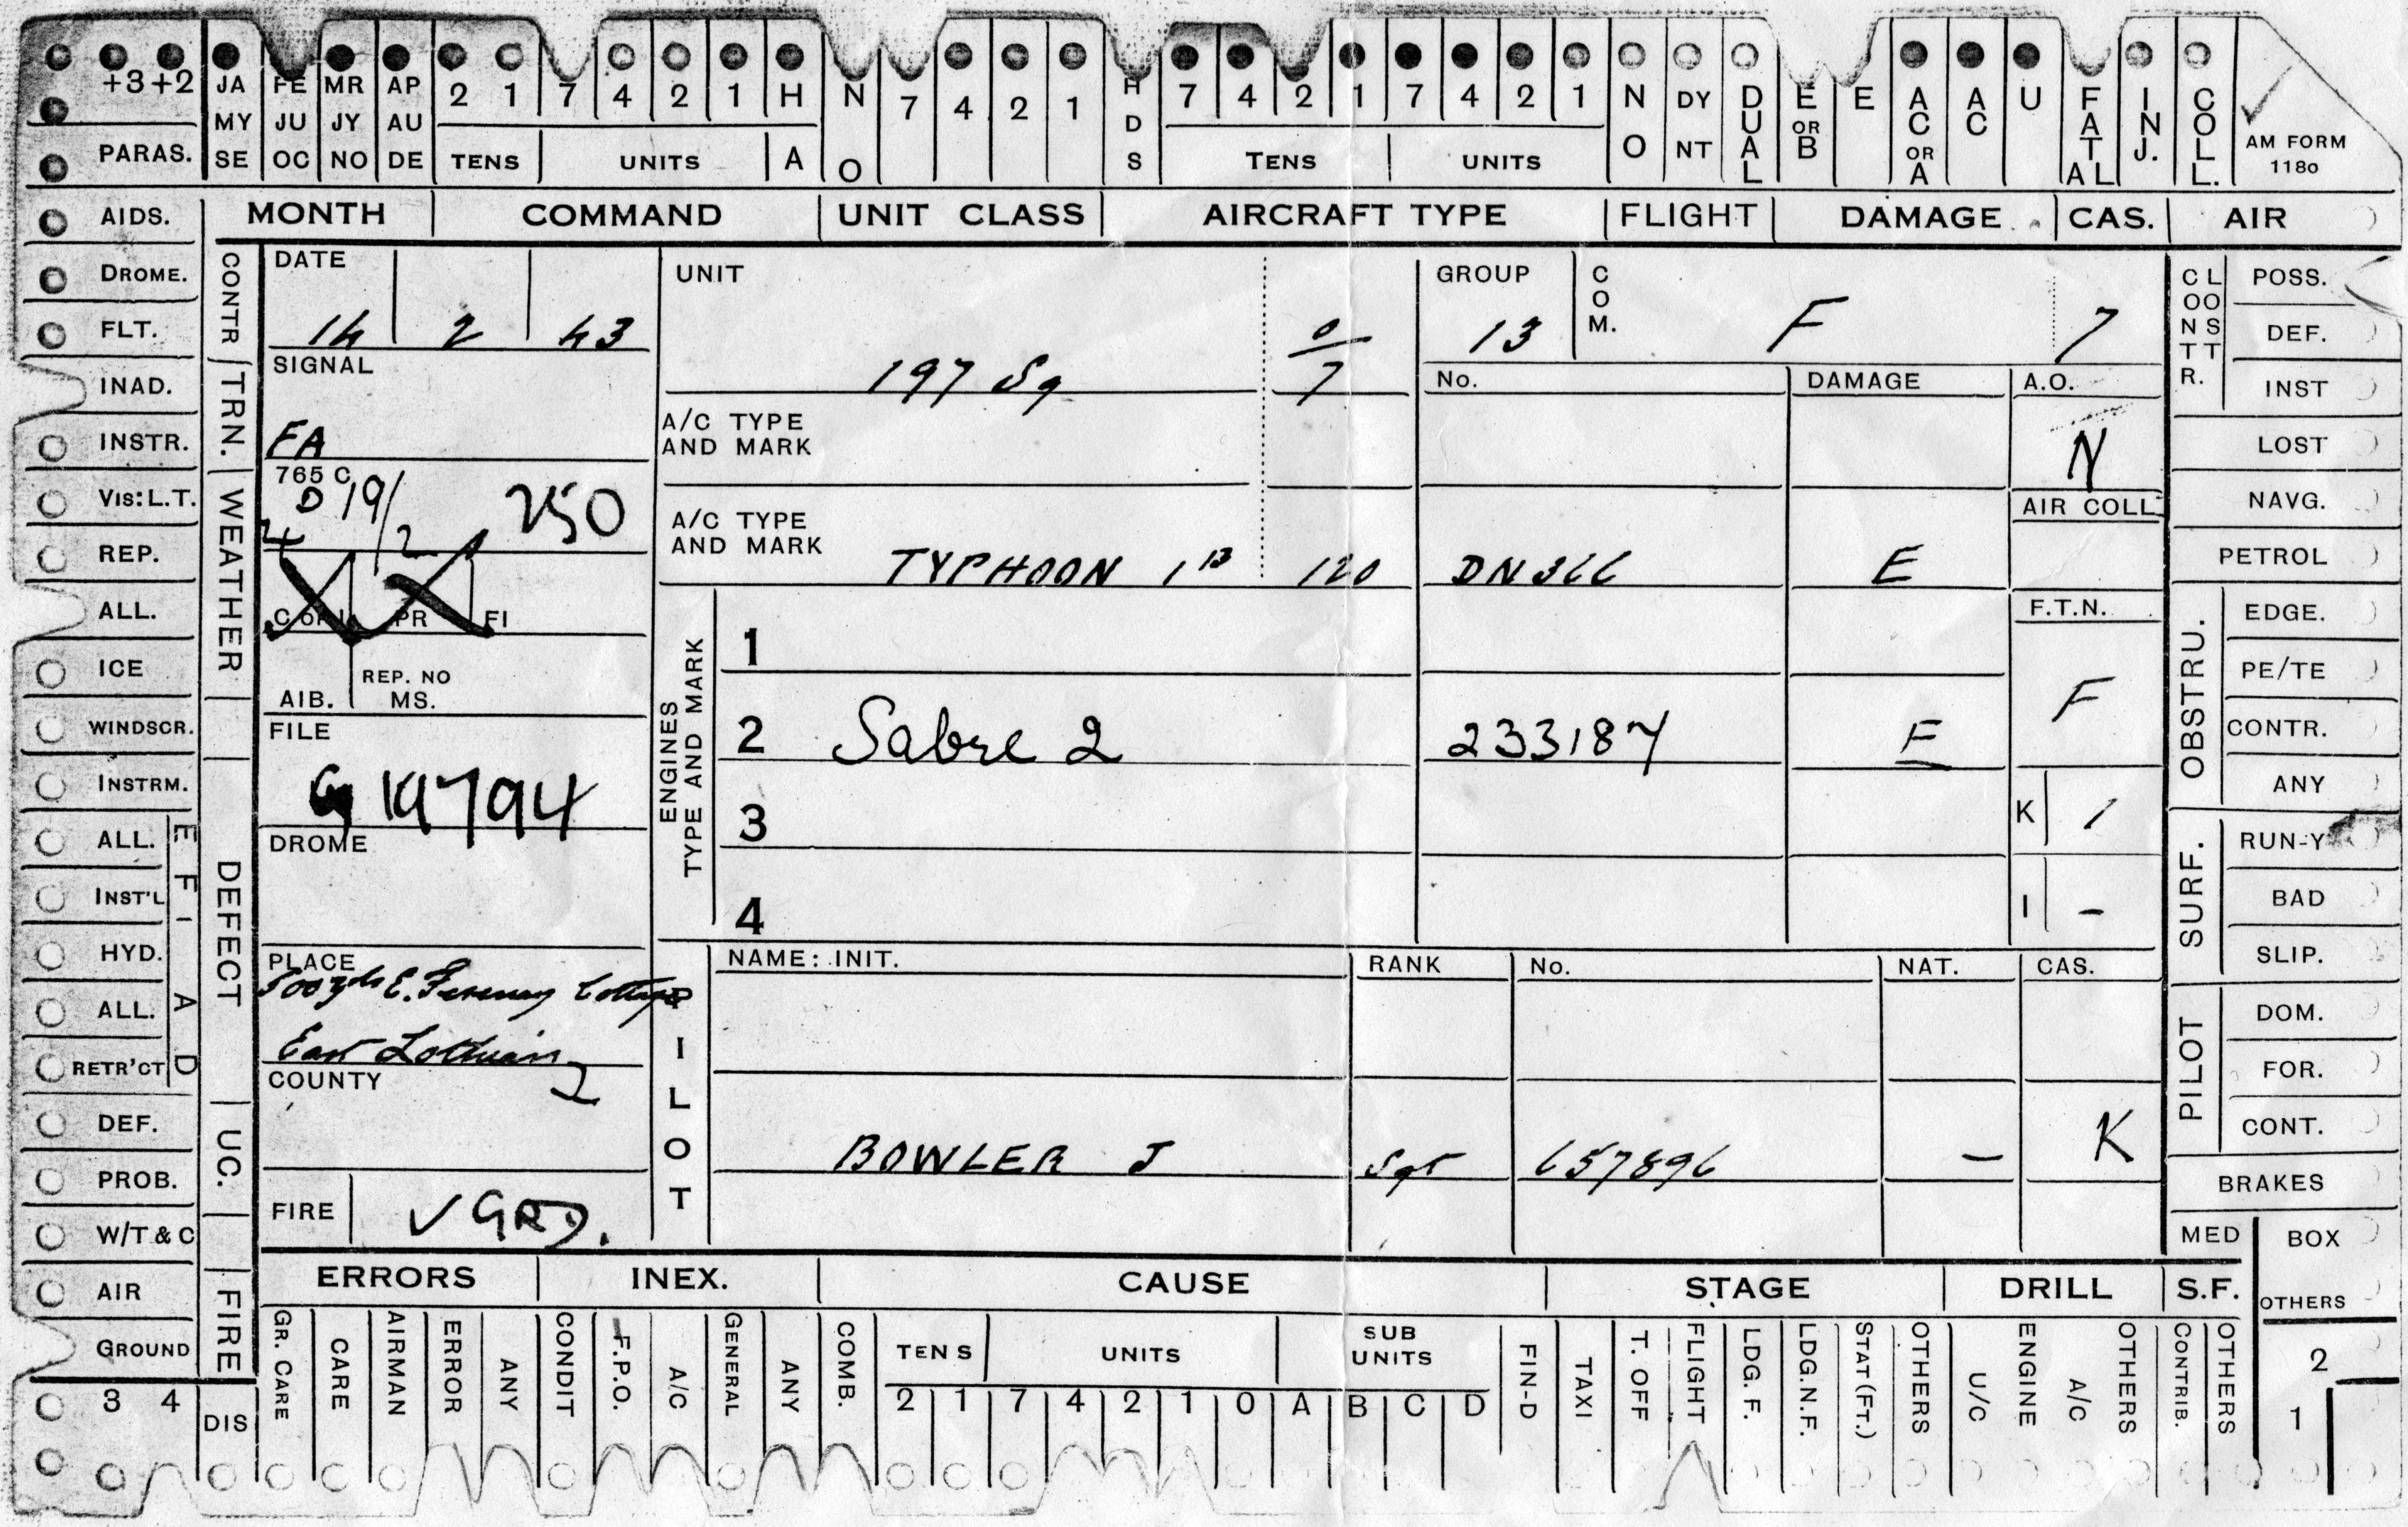 +3 +2 JA FE MR AP 2 1 7 4 2 1 H N 7 4 2 1 H 7 4 2 1 7 4 2 1 N DY DUAL E OR B E AC OR A AC U FATAL INJ. COLL.
MY JU JY AU D
PARAS. SE OC NO DE TENS UNITS A O S TENS UNITS O NT AM FORM
1180
AIDS. MONTH COMMAND UNIT CLASS AIRCRAFT TYPE FLIGHT DAMAGE CAS. AIR
DROME.
FLT.
INAD.
INSTR.
VIS: L.T.
REP.
ALL.
ICE
WINDSCR.
INSTRM.
ALL.
INST'L
HYD.
ALL.
RETR'CT
DEF.
PROB.
W/T & C
AIR
GROUND
3 4
CONTR
TRN.
WEATHER
DEFECT
E F I
A D
UC.
FIRE
DIS
DATE
14 2 43
SIGNAL
FA
765 C
D 19/2 250
C OR I PR FI
AIB. REP. NO
MS.
FILE
G 19794
DROME
PLACE
500 yds E. Cottage
East Lothian
COUNTY 2
FIRE ✓ GRD.
UNIT
197 Sq 0/7
A/C TYPE
AND MARK
A/C TYPE
AND MARK
TYPHOON 1B 120
GROUP
13
COM.
F 7
No. DAMAGE A.O.
N
AIR COLL
DN366 E
F.T.N.
F
ENGINES
TYPE AND MARK
1
2 Sabre 2 233187 E
3
4
K 1
I -
PILOT
NAME: INIT. RANK No. NAT. CAS.
BOWLER J Sgt 657896 - K
CONTR.
CLOST
POSS.
DEF.
INST
LOST
NAVG.
PETROL
OBSTRU.
EDGE.
PE/TE
CONTR.
ANY
SURF.
RUN-Y
BAD
SLIP.
PILOT
DOM.
FOR.
CONT.
BRAKES
MED BOX
OTHERS
2
1
ERRORS INEX. CAUSE STAGE DRILL S.F.
GR. CARE CARE AIRMAN ERROR ANY CONDIT F.P.O. A/C GENERAL ANY COMB. TENS UNITS SUB UNITS FIN-D TAXI T. OFF FLIGHT LDG. F. LDG.N.F. STAT (FT.) OTHERS U/C ENGINE A/C OTHERS CONTRIB. OTHERS
2 1 7 4 2 1 0 A B C D